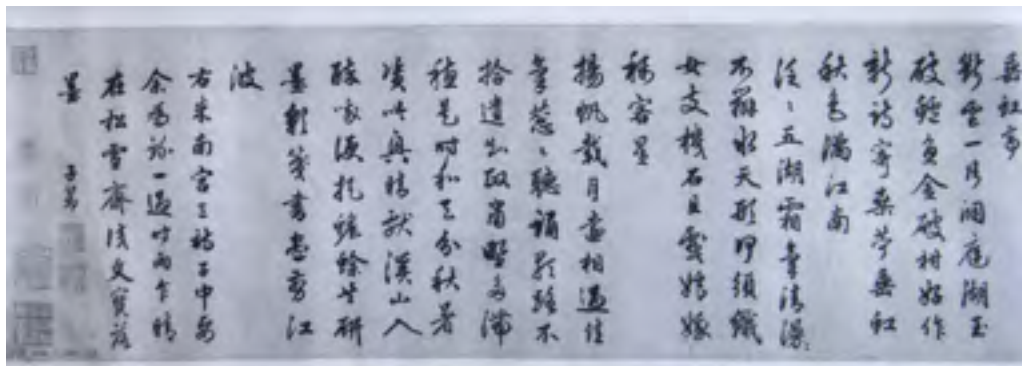 垂虹亭
斷雲一片洞庭湖玉
破鱸魚金破柑好作
新詩寄桑苧垂虹
秋色滿江南
泛〻五湖霜氣清漫〻
不辨水天形何須織
女支機石且戲嫦娥
稱客星
揚帆載月遠相過佳
氣蔥〻聽誦歌路不
拾遺知政肅野多滯
穗是時和天分秋暑
資吟興晴獻溪山入
醉哦便捉蟾蜍共研
墨彩箋書盡剪江
波
右米南宮三詩子中要
余為臨一過時雨乍晴
在松雪齋
墨 子昂